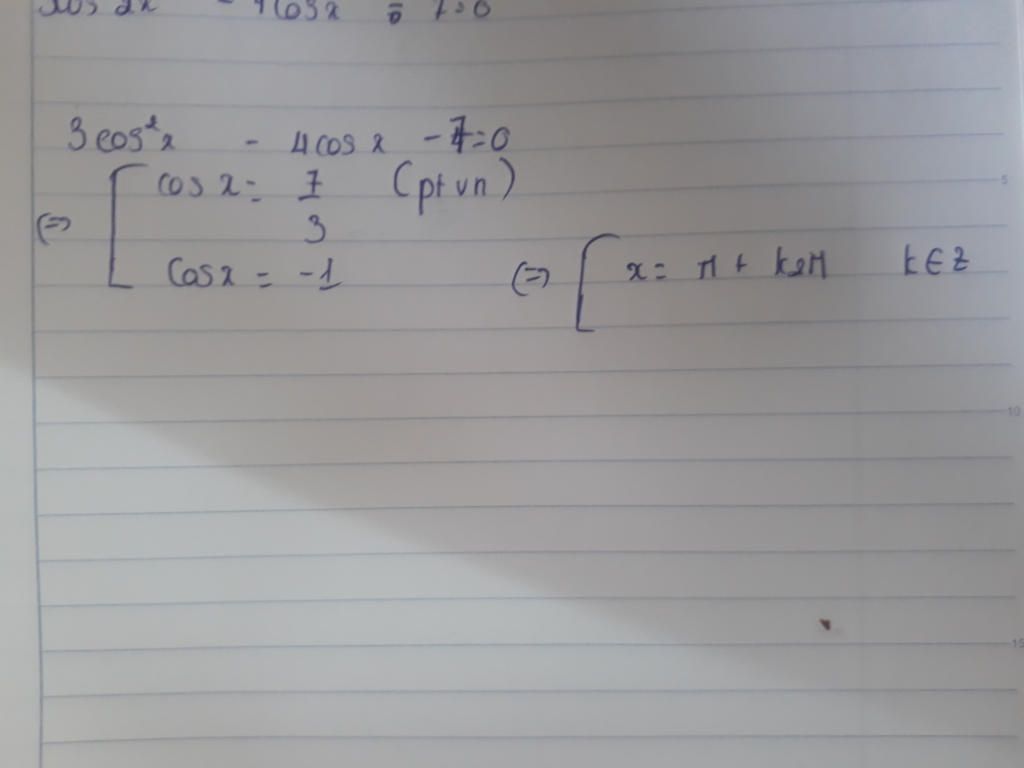 cos 2x - 4cosx 7=0
3cos²x - 4cosx - 7=0
⇔ [ cosx = 7/3 (ptvn)
cosx = -1 ⇔ [ x = π + k2π k∈Z
5
10
15